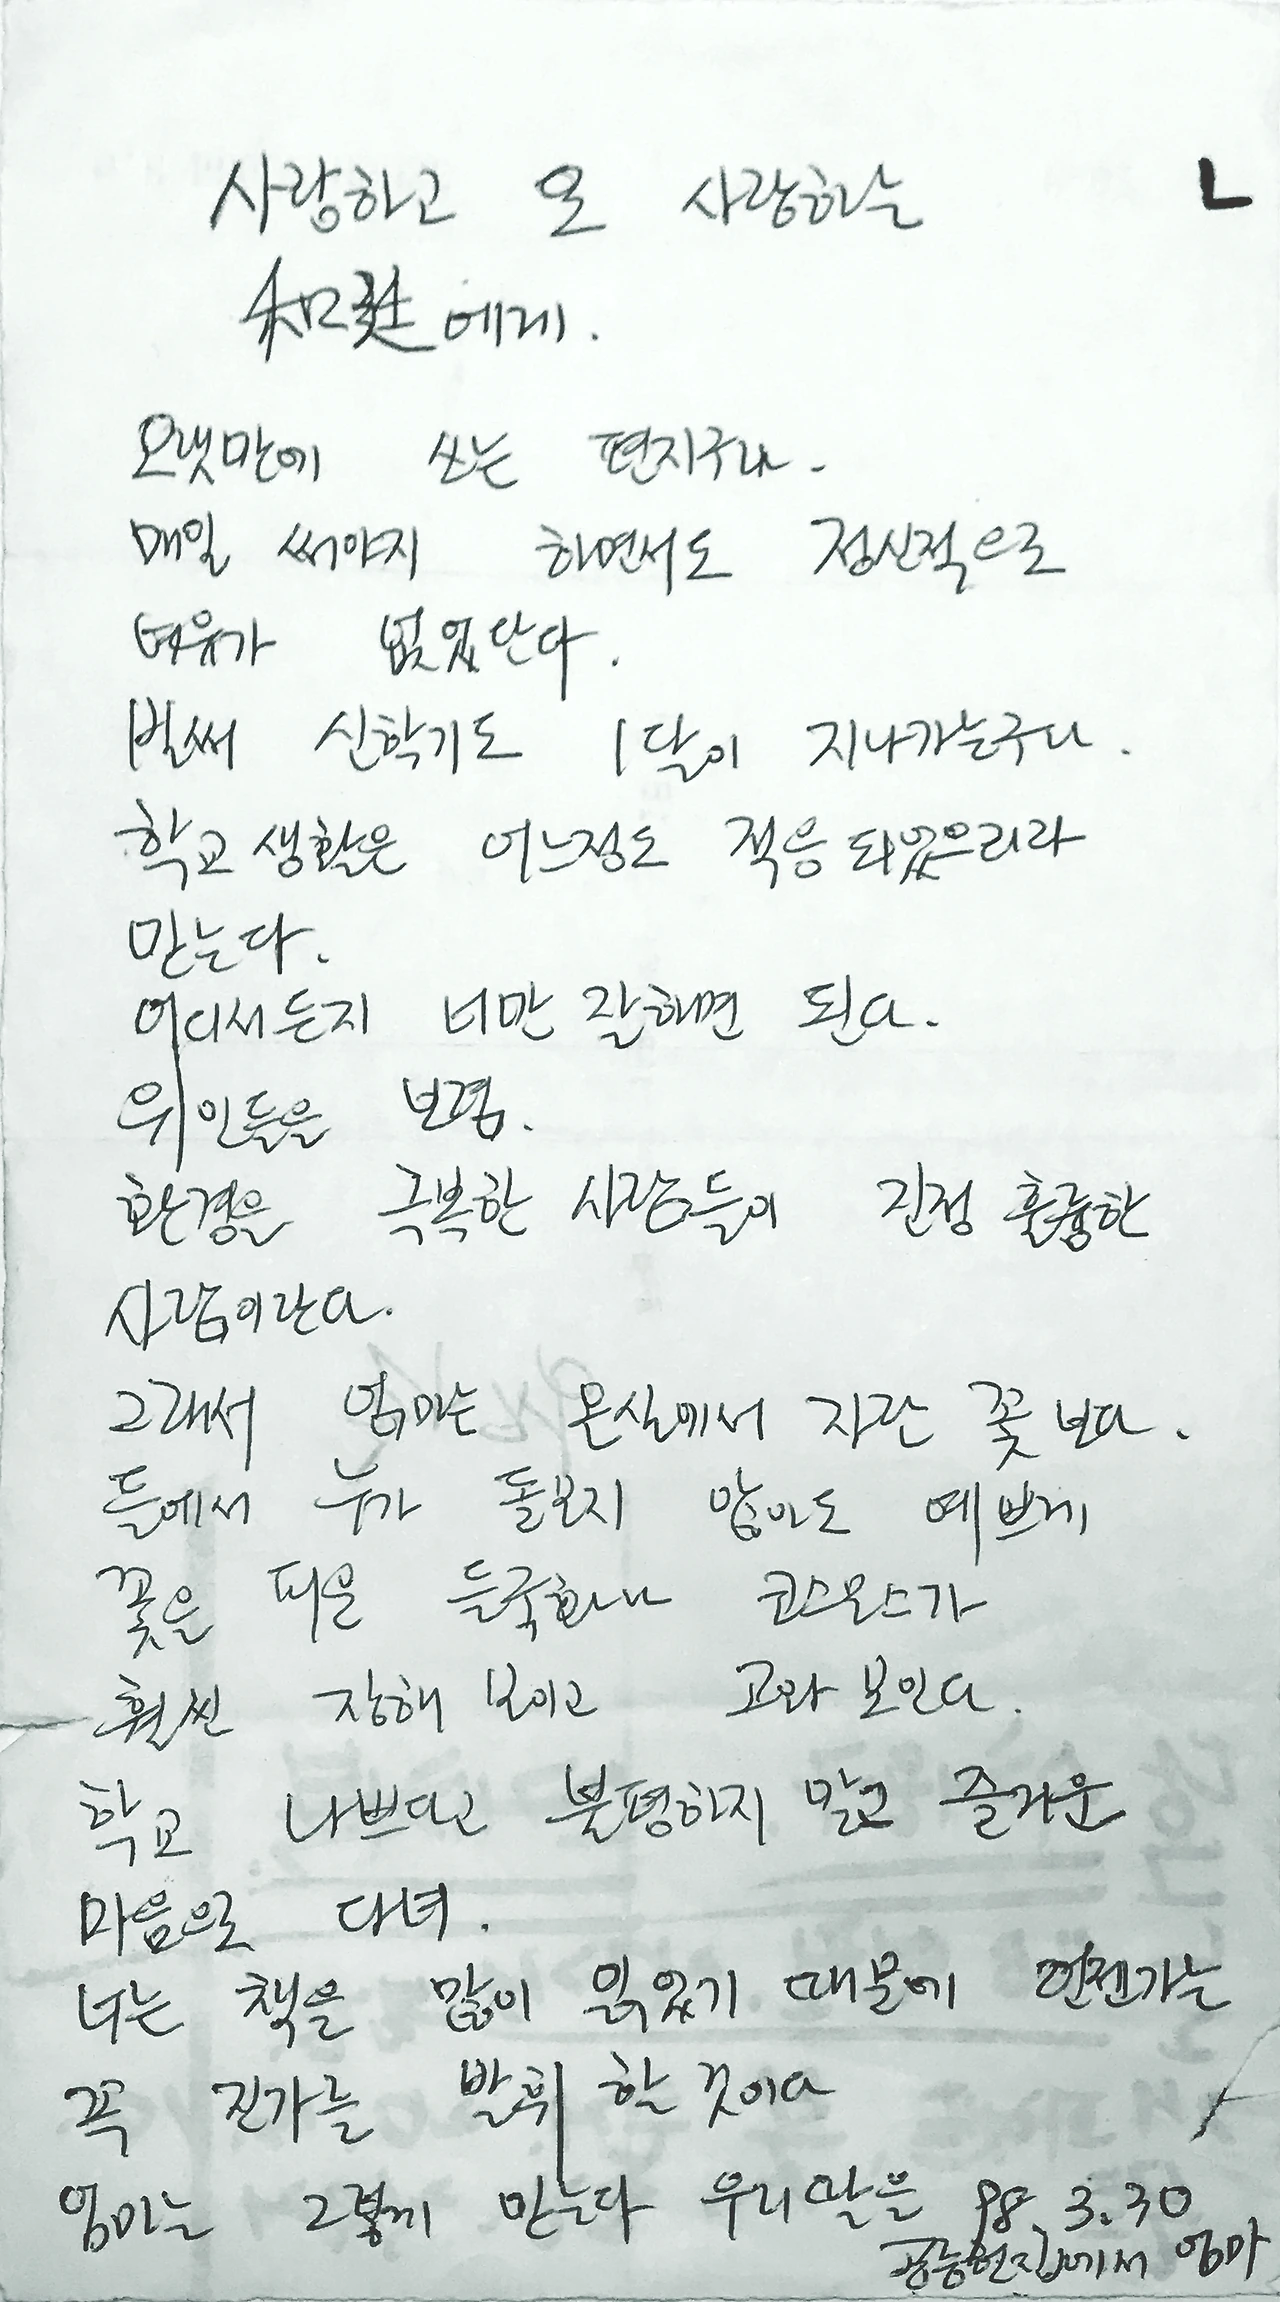 사랑하고 또 사랑하는
에게.
오랫만에 쓰는 편지구나.
매일 써야지 하면서도 정신적으로
여유가 없었단다.
벌써 신학기도 1달이 지나가는구나.
학교 생활은 어느정도 적응 되었으리라
믿는다.
어디서든지 너만 잘하면 된다.
위인들을 보렴.
환경을 극복한 사람들이 진정 훌륭한
사람이란다.
그래서 엄마는 온실에서 자란 꽃 보다.
들에서 누가 돌보지 않아도 예쁘게
꽃을 피운 들국화나 코스모스가
훨씬 장해 보이고 고와 보인다.
학교 나쁘다고 불평하지 말고 즐거운
마음으로 다녀.
너는 책을 많이 읽었기 때문에 언젠가는
꼭 진가를 발휘 할 것이다
엄마는 그렇게 믿는다 우리 딸을 98. 3. 30
집에서 엄마